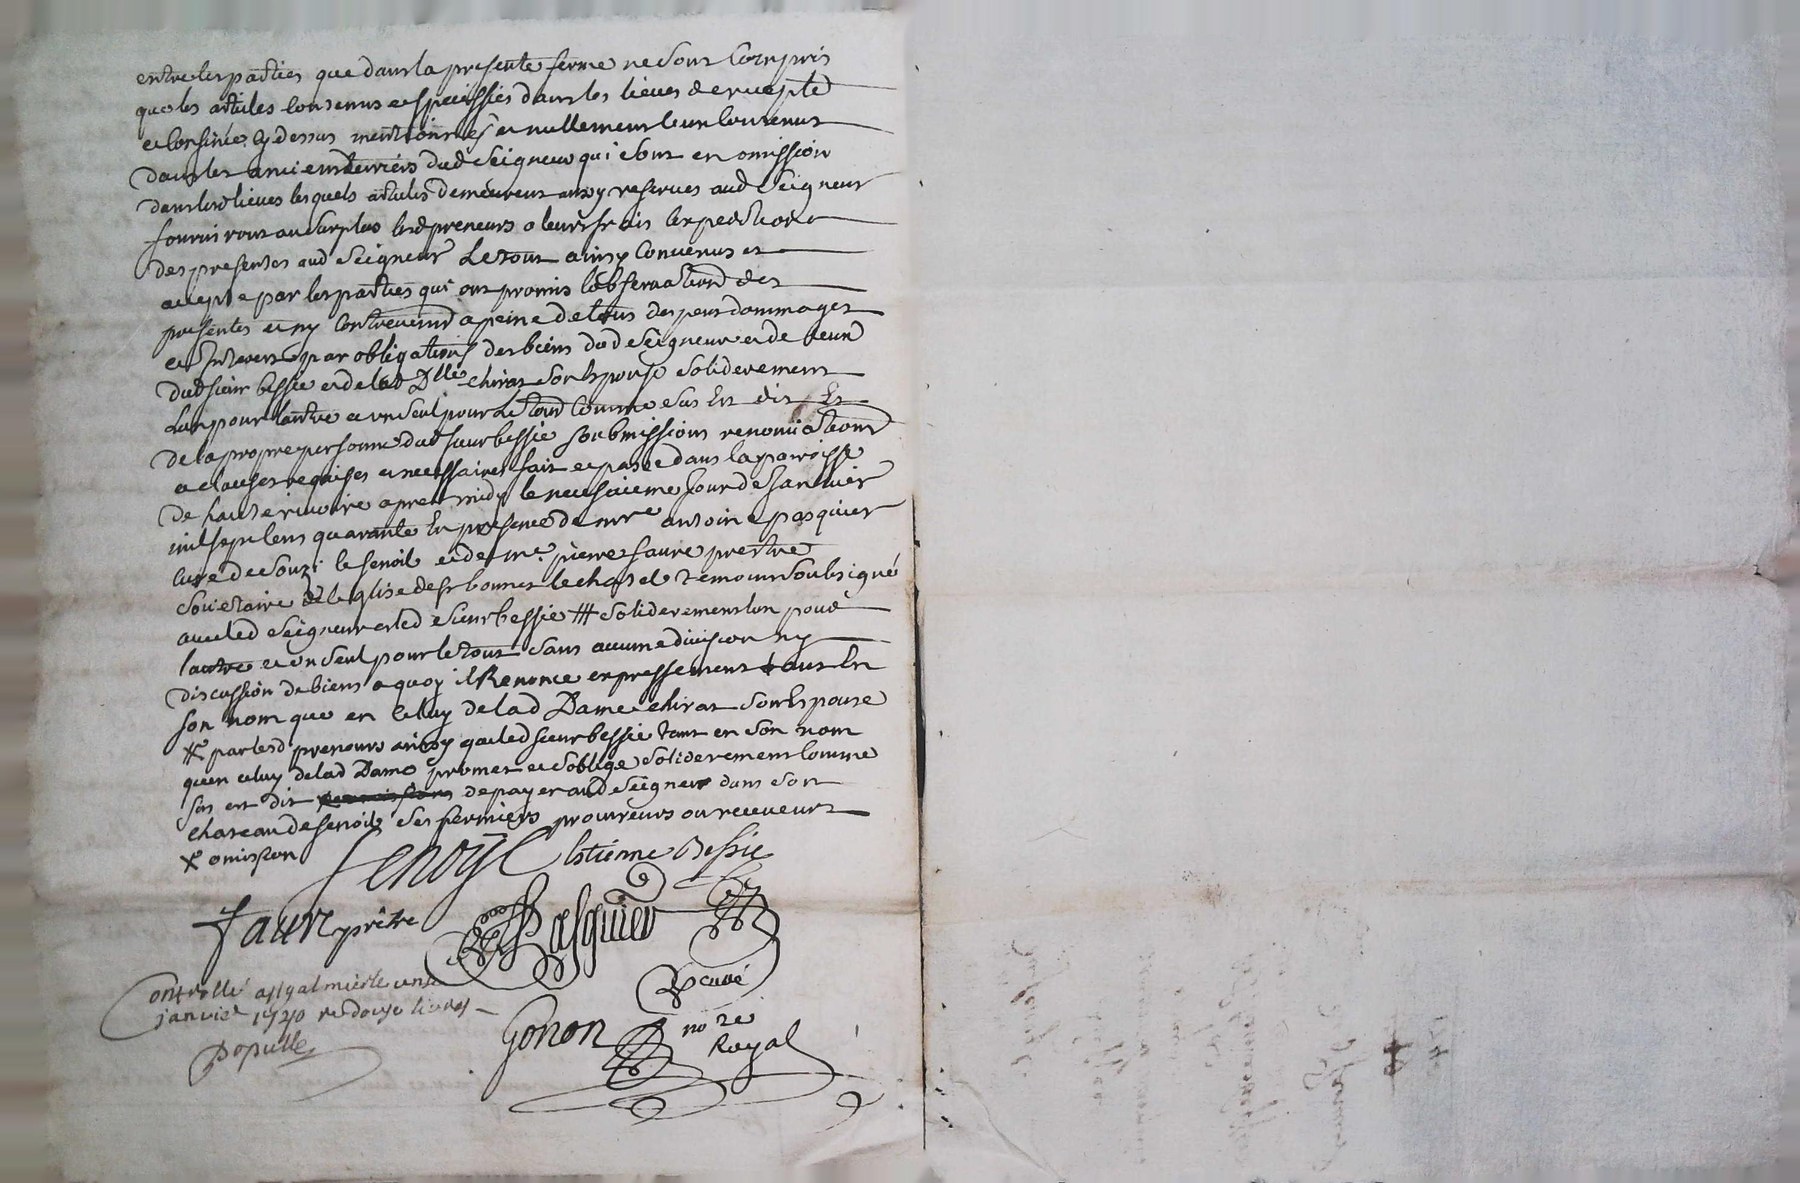 entre les parties que dans la presente ferme ne sont compris
que les articles contenus et speciffiés dans les lieves de recepte
et confinée cy dessus mentionnes et nullement ceux contenus
dans les anciens terriers dud seigneur qui sont en omission
dans lesd lieves lesquels articles demeurent ainsy reservés aud seigneur
fourniront au surplus lesd preneurs a leurs frais l'expedition
des presentes aud seigneur Le tout ainsy convenus et
accepte par les parties qui ont promis l'observation des
presentes et ny contrevenir a peine de tous despens dommages
et interest par obligations des biens dud seigneur et de ceux
dud sieur bessie et de lad Dlle chirat son espouse soliderement
l'un pour l'autre et un seul pour le tout comme sus Est dit Et
de la propre personne dud sieur bessie soubmissions renonciations
et clauses requises et necessaires fait et passé dans la paroisse
de hauterivoire apres midy le neufvieme jour de Janvier
mil sept cens quarante En presence de mre antoine pasquier
curé de souzi le senoil et de mre pierre faure prestre
societaire de l'eglise de st bonnet le chatel temoins soubsigné
avec led seigneur et led sieur bessie # soliderement lun pour
lautre et un seul pour le tout sans aucune division ny
discussion de biens a quoy il Renonce expressement tant En
son nom que en celuy de lad Dame chirat son Espouse
# par lesd preneurs ainsy que led sieur bessie tant en son nom
quen celuy de lad Dame promet et soblige soliderement comme
sus est dit de payer aud seigneur dans son
chateau de senoil ses fermiers procureurs ou receveurs
x omission
Senoyl Estienne Bessie
Faure prêtre
Pasquier
curé
Controllé a st galmier le onze
janvier 1740 re douze livres
Populle
Gonon nore
Royal